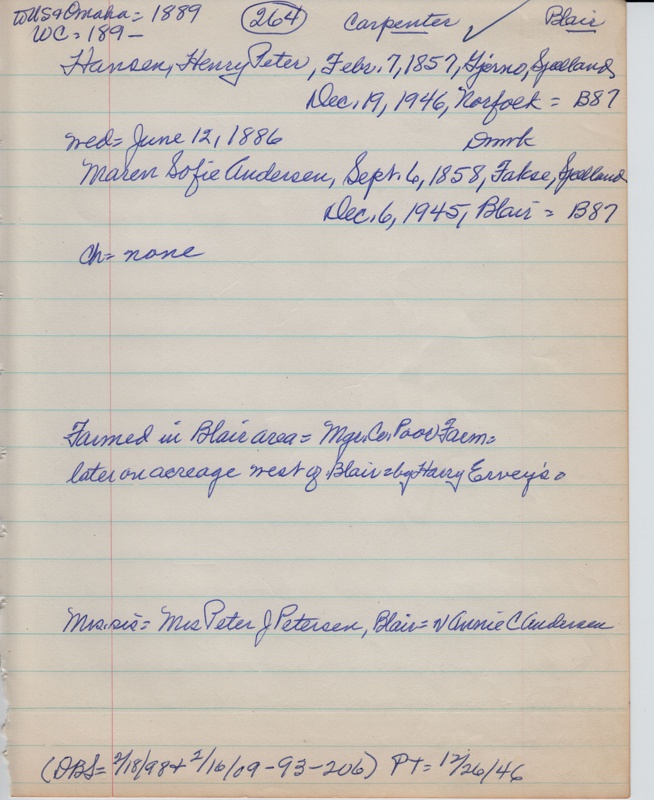 to US & Omaha = 1889 (264) Carpenter ✓ Blair
WC = 189-
Hansen, Henry Peter, Febr. 7, 1857, Gjorno, Sjælland,
Dec. 19, 1946, Norfolk = B87
wed = June 12, 1886 Dnmrk
Maren Sofie Andersen, Sept. 6, 1858, Fakse, Sjælland
Dec. 6, 1945, Blair = B87
Ch = none
Farmed in Blair area = Mgr. Co. Poor Farm =
later on acreage west of Blair = by Harry Ervey's.
Mrs. sis = Mrs Peter J Petersen, Blair = v Annie C Andersen
(DBS = 2/18/98 + 2/16/09 - 93 - 206) PT = 12/26/46